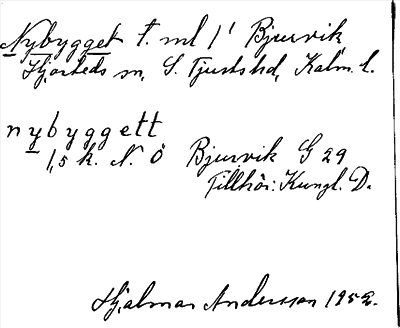 Nybygget t. ml 1' Bjurvik
Hjorteds sn, S. Tjusts hd, Kalm. l.
nybyggett
1,5 k. N. Ö Bjurvik G 29
Tillhör: Kungl. D.
Hjalmar Andersson 1952.